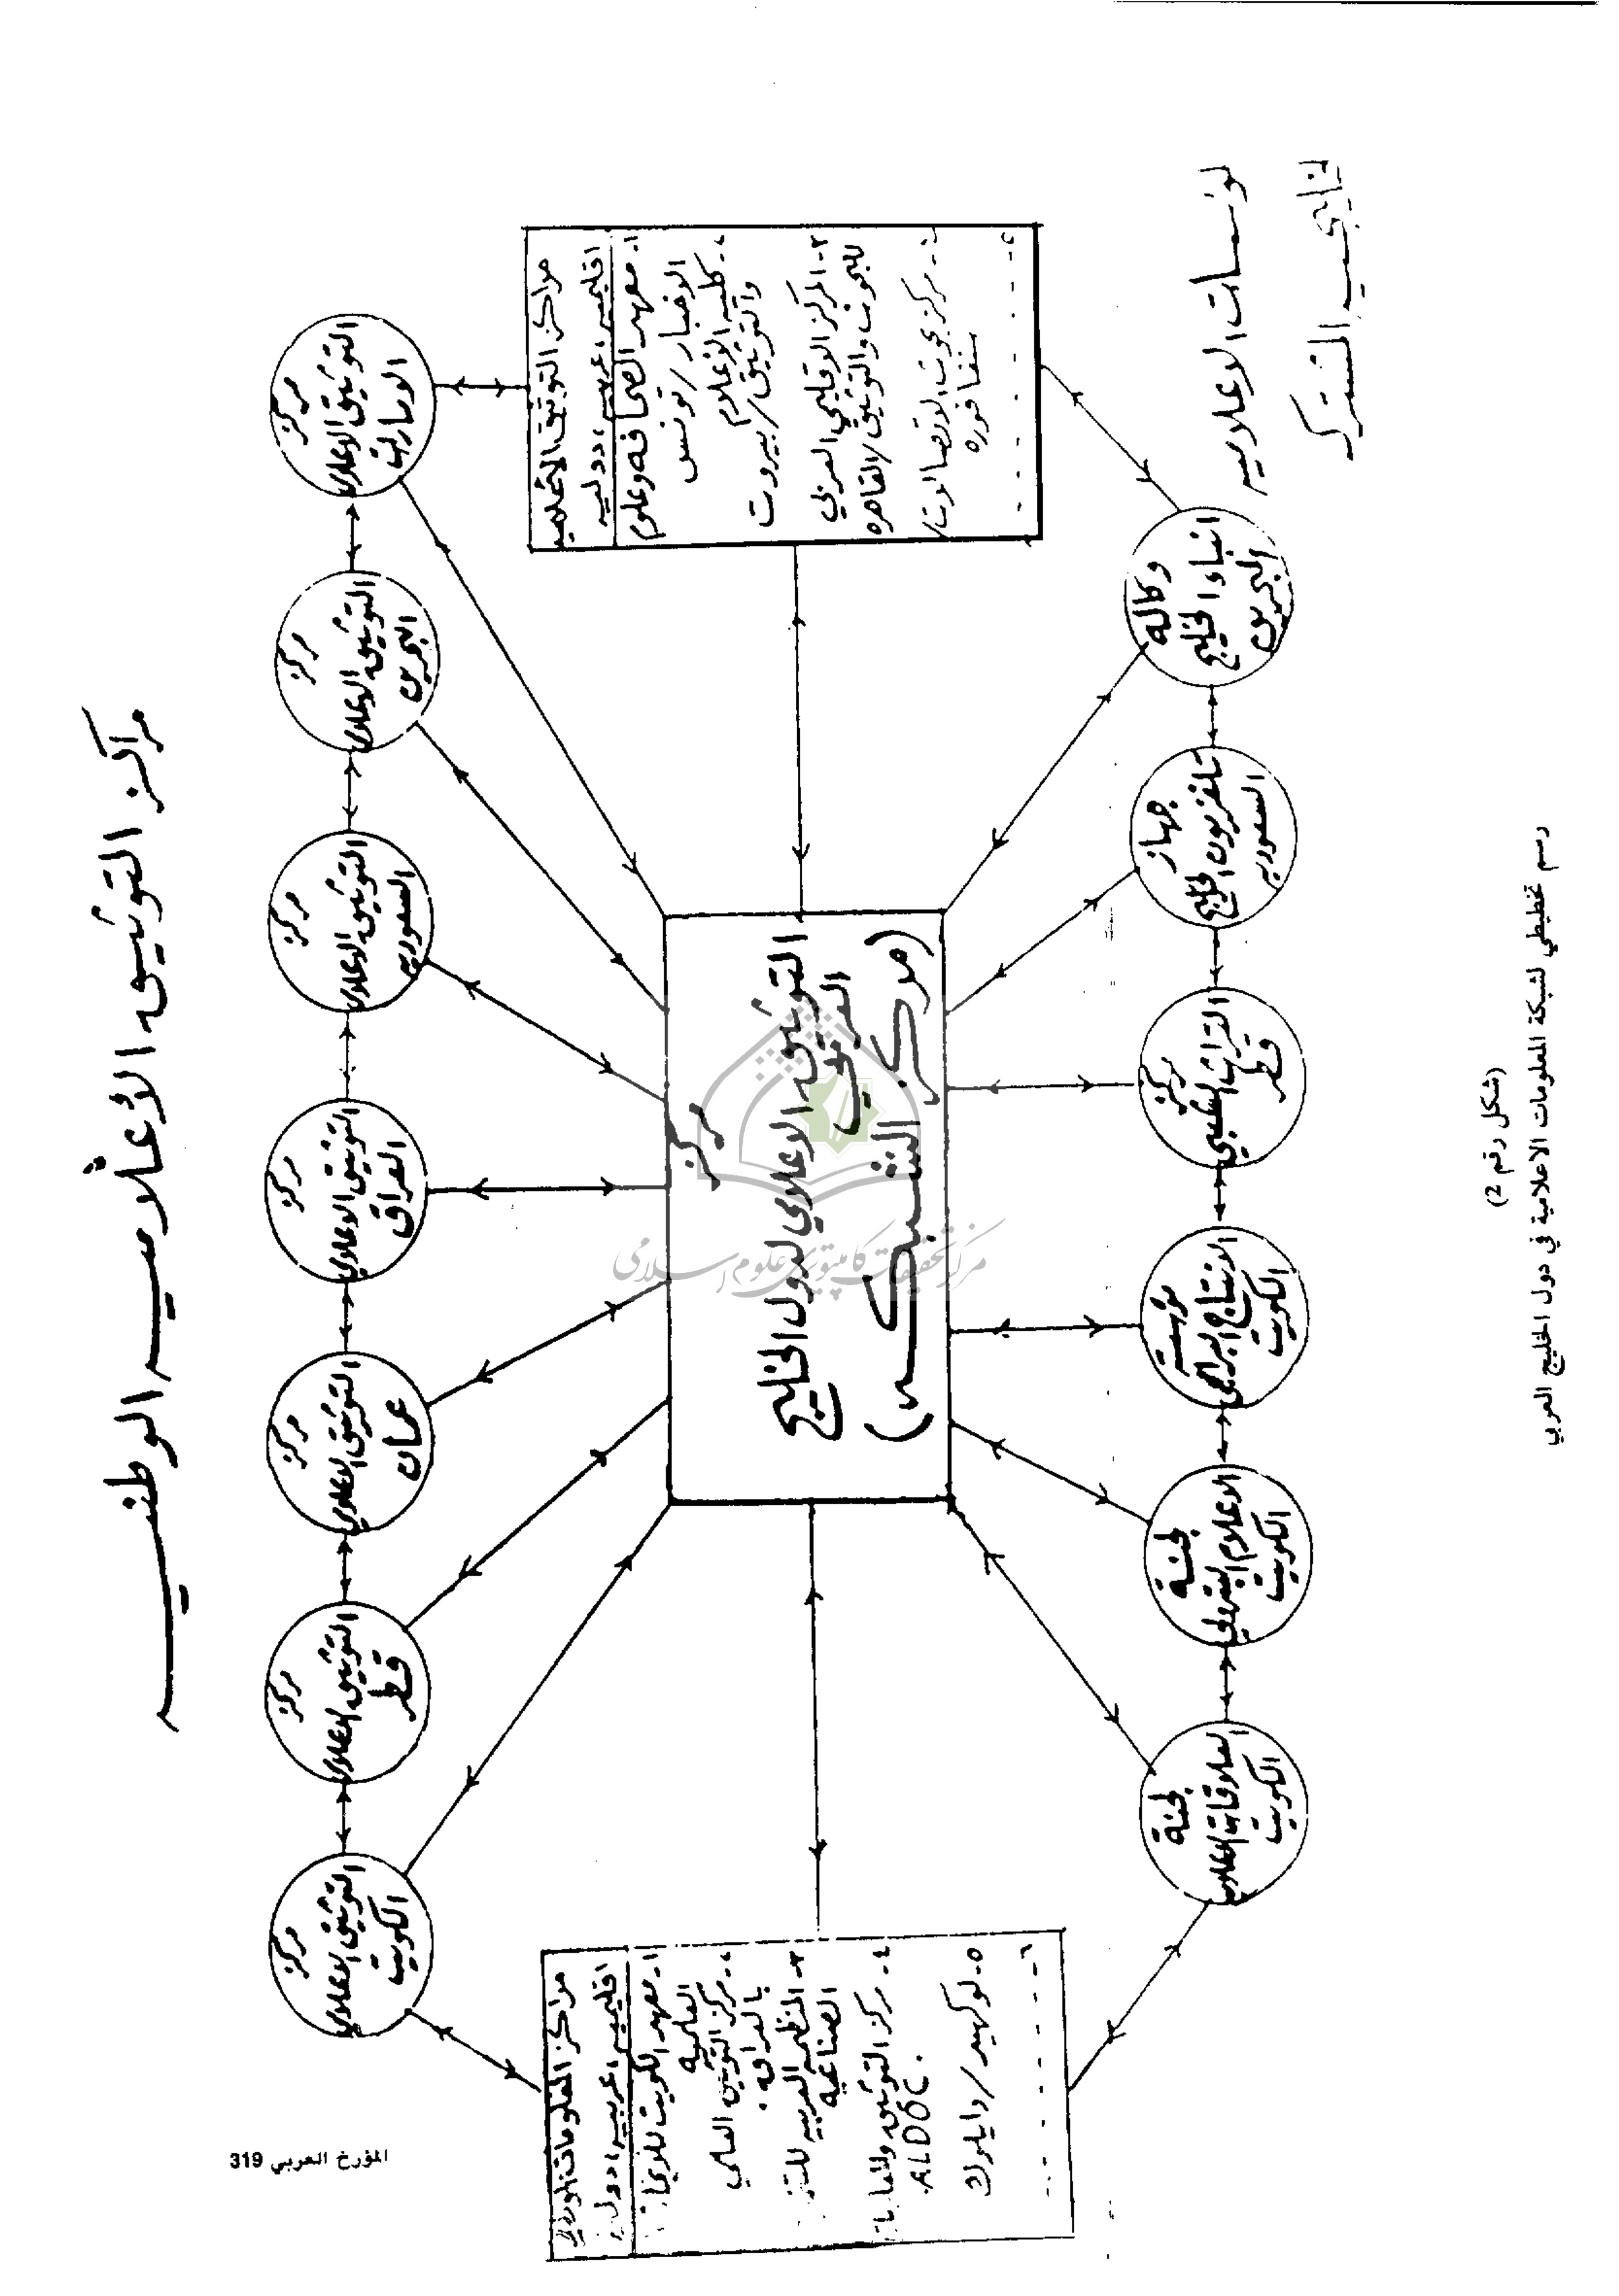 مراكز التوثيق الاعلاميه الوطنيه
مركز
التوثيق الاعلامي
الامارات
مركز
التوثيق الاعلامي
البحرين
مركز
التوثيق الاعلامي
السعوديه
مركز
التوثيق الاعلامي
العراق
مركز
التوثيق الاعلامي
عمان
مركز
التوثيق الاعلامي
قطر
مركز
التوثيق الاعلامي
الكويت
مراكز التوثيق الاعلاميه
اقليميه، عربيه، دوليه
١- معهد الصحافه وعلوم
الاخبار / تونس
٢- كلية الاعلام
والتوثيق / بيروت
٣- المركز الاقليمي العربي
للبحوث والتوثيق / القاهره
٤- مركز بحوث الاتصالات /
سنغافوره
٥- - - - -
مركز
التوثيق الاعلامي لدول الخليج
العربي
(مركز الشبكه)
مراكز المعلومات
اقليميه، عربيه، دوليه
١- معهد الكويت للابحاث
العلميه
٢- مركز التوثيق العلمي
بالعراق.
٣- المنظمه العربيه للتنميه
الصناعيه
٤- مركز التوثيق والمعلومات
ALDOC.
٥- لوكهيد / دايلوك
٦- - - - -
وكالة
انباء الخليج
البحرين
جهاز
تلفزيون الخليج
السعوديه
مركز
التراث الشعبي
قطر
مؤسسة
الانتاج البرامجي
الكويت
لجنة
الاعلام البترولي
الكويت
لجنة
العلاقات الاعلاميه
الكويت
مؤسسات الاعلاميه
الخليجيه المشتركه
(شكل رقم 2)
رسم تخطيطي لشبكة المعلومات الاعلامية في دول الخليج العربي
المؤرخ العربي 319
مركز تحقیقات کامپیوتری علوم اسلامی